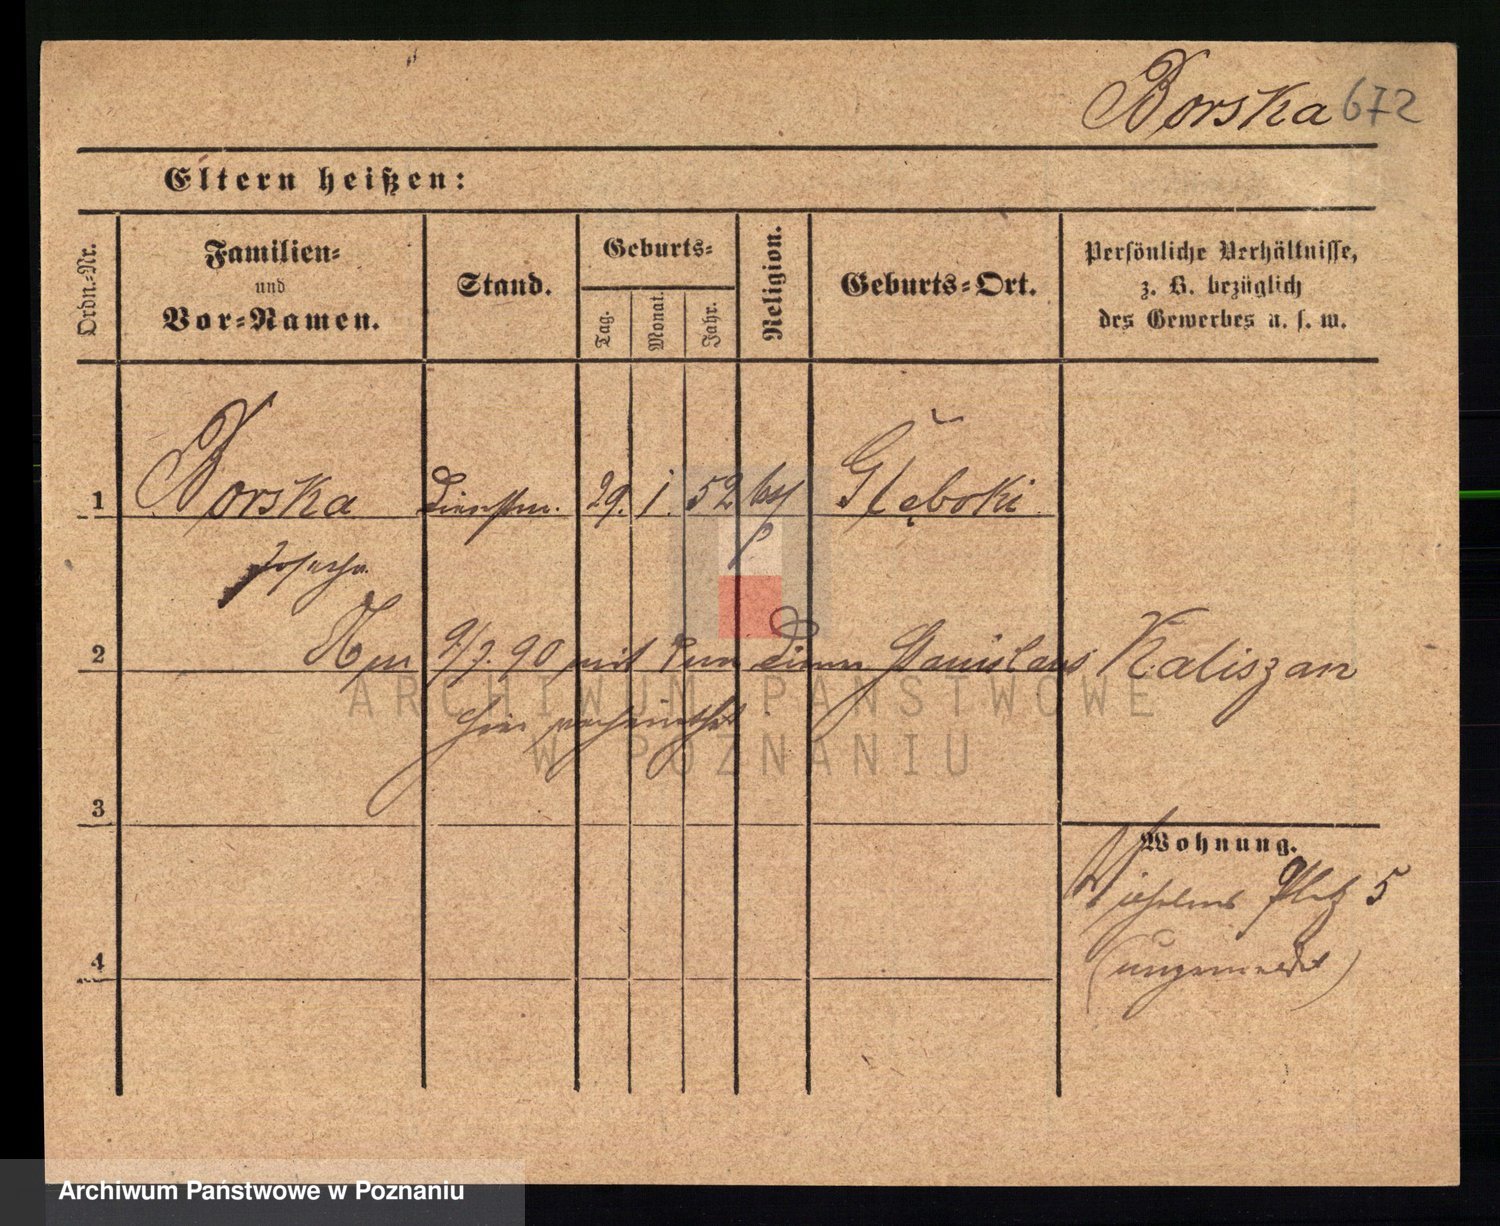 Borska 672
Eltern heißen:
Ordn.-Nr.
Familien-
und
Vor-Namen.
Stand.
Geburts-
Tag.
Monat.
Jahr.
Religion.
Geburts-Ort.
Persönliche Verhältnisse,
z. B. bezüglich
des Gewerbes u. s. w.
1 Borska 29. 1. 52 Głęboki
Josepha
2 9/7. 90 mit dem Diener Stanislaus Kaliszan
hier verheirathet
3
Wohnung.
Wilhelms Platz 5
(ungemeldet)
4
ARCHIWUM PAŃSTWOWE
W POZNANIU
Archiwum Państwowe w Poznaniu